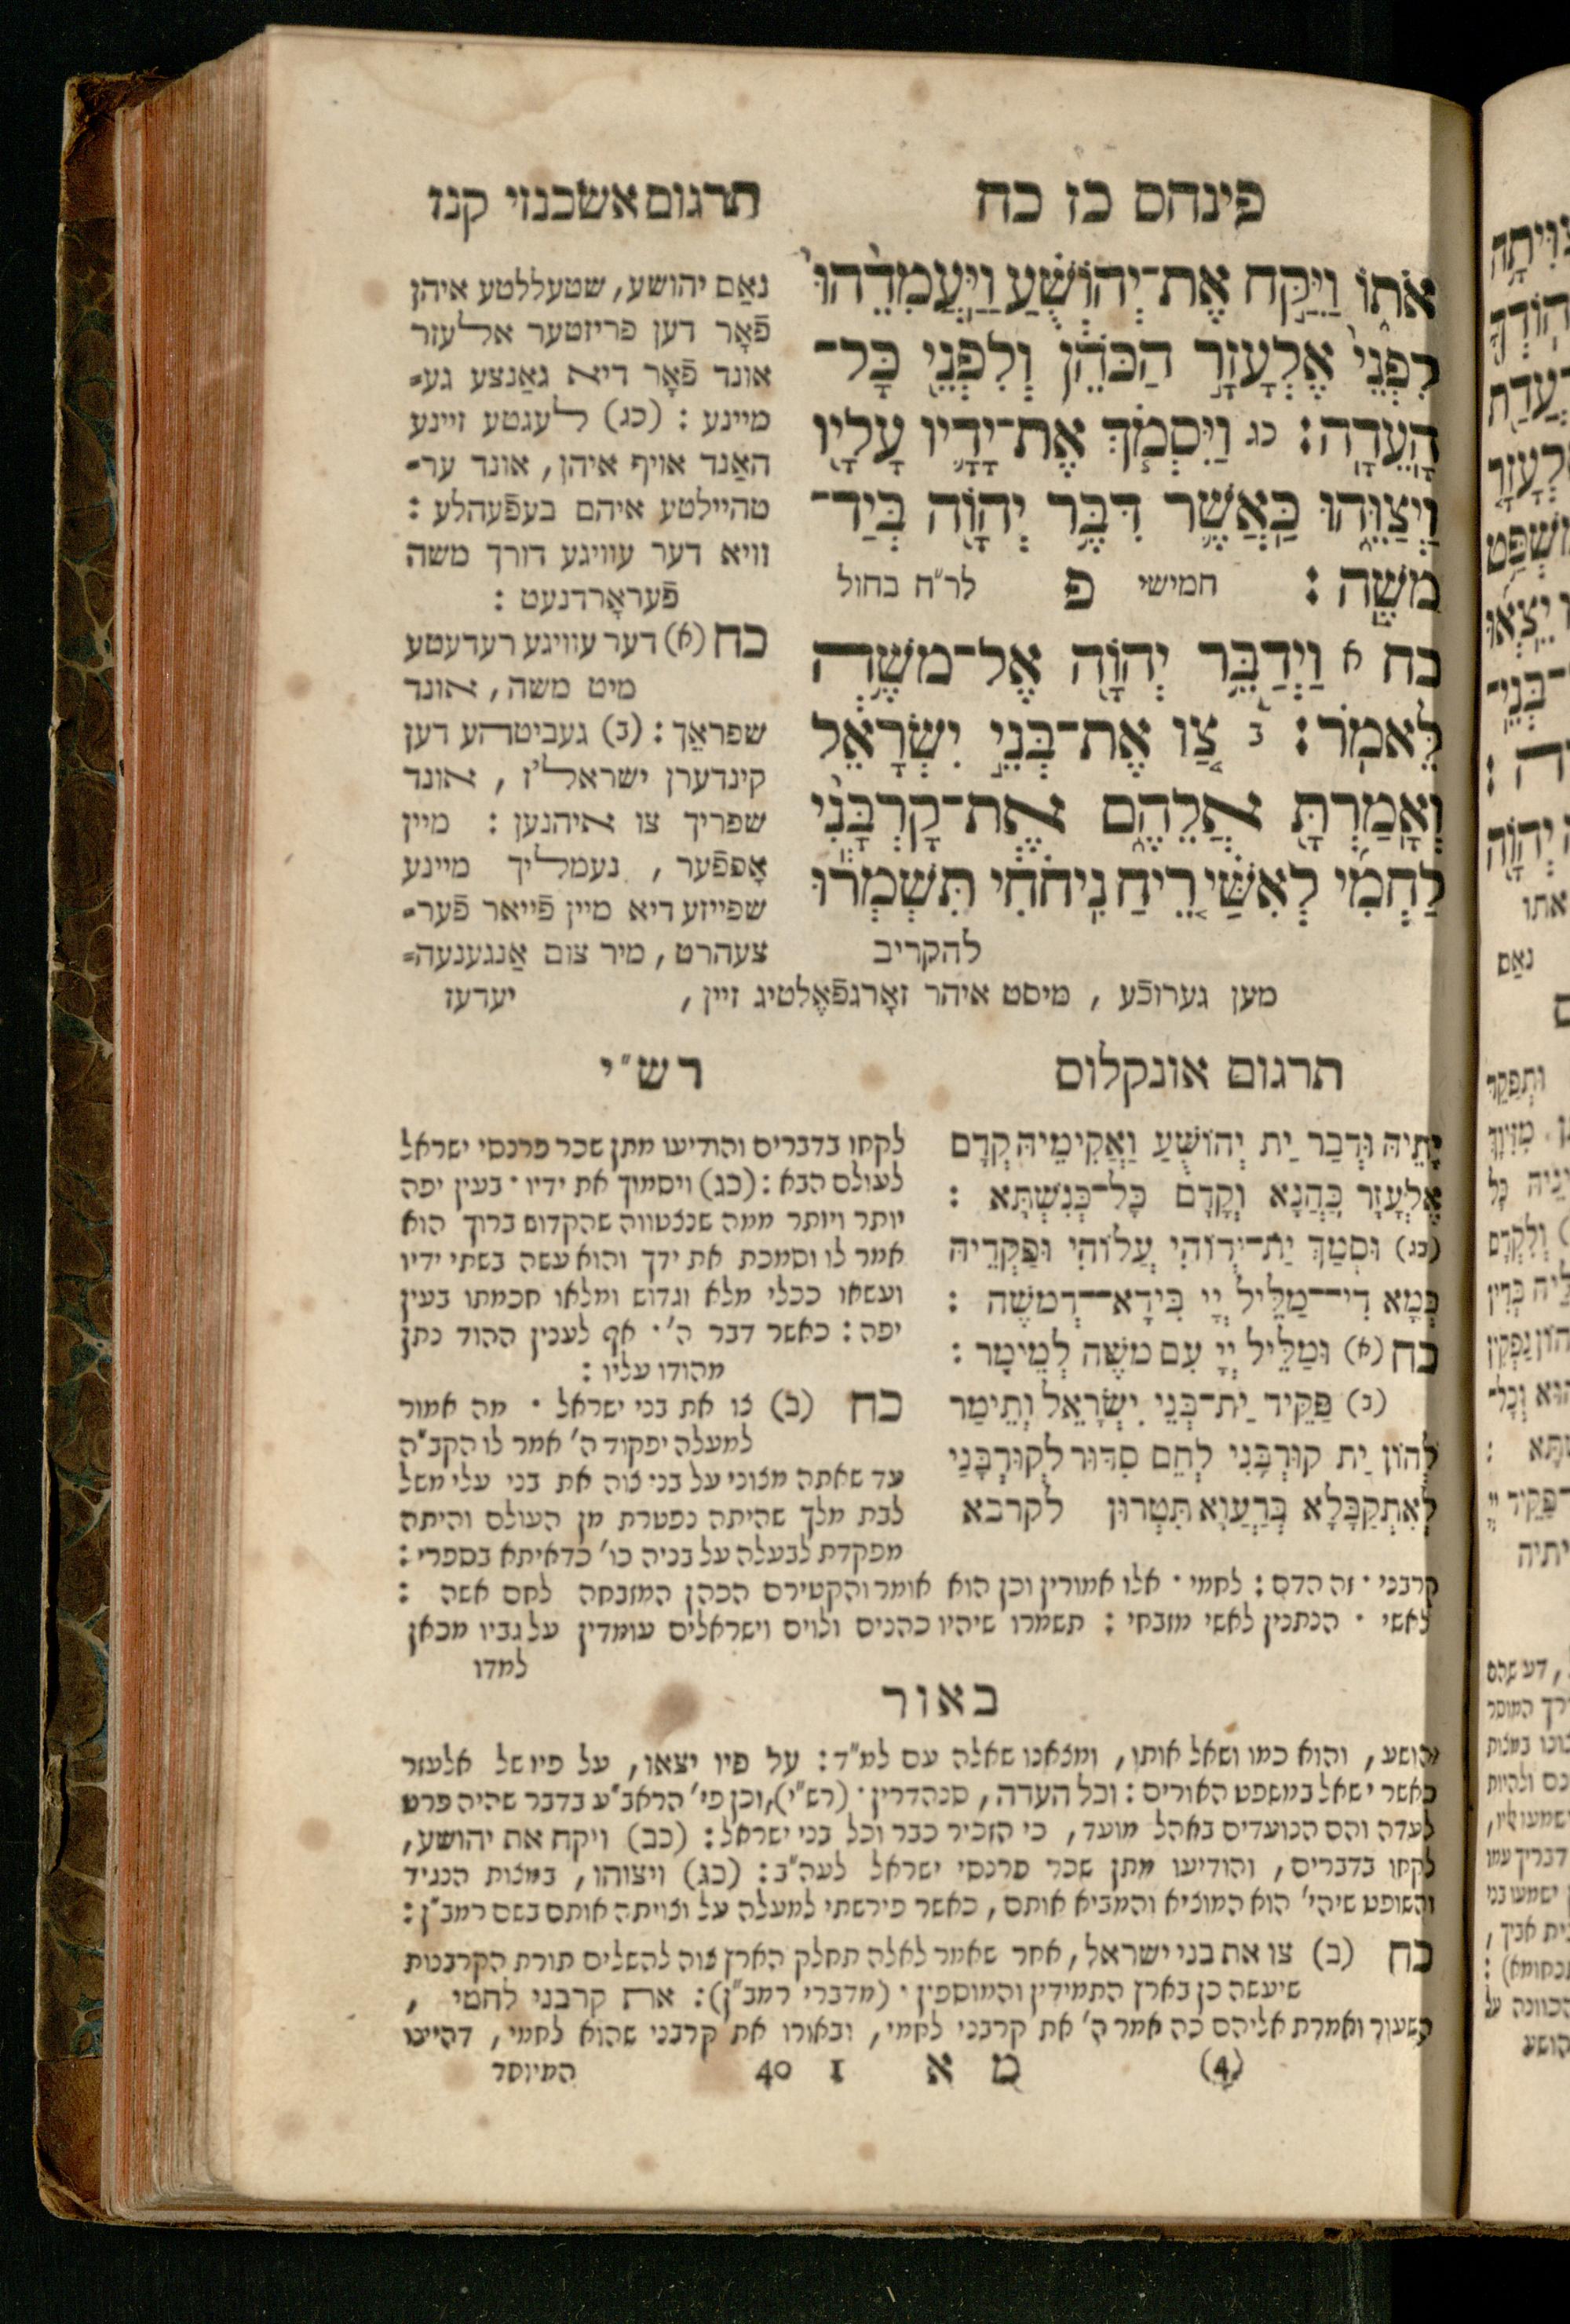 פינחס כז כח
תרגום אשכנזי קנז
אֹת֑וֹ וַיִּקַּ֣ח אֶת־יְהוֹשֻׁ֗עַ וַיַּֽעֲמִדֵ֙הוּ֙
לִפְנֵי֙ אֶלְעָזָ֣ר הַכֹּהֵ֔ן וְלִפְנֵ֖י כָּל־
הָֽעֵדָֽה׃ כג וַיִּסְמֹ֧ךְ אֶת־יָדָ֛יו עָלָ֖יו
וַיְצַוֵּ֑הוּ כַּֽאֲשֶׁ֛ר דִּבֶּ֥ר יְהוָֹ֖ה בְּיַד־
מֹשֶֽׁה׃ חמישי פ לר"ח בחול
כח א וַיְדַבֵּ֥ר יְהוָֹ֖ה אֶל־מֹשֶׁ֥ה
לֵּאמֹֽר׃ ב צַ֚ו אֶת־בְּנֵ֣י יִשְׂרָאֵ֔ל
וְאָֽמַרְתָּ֖ אֲלֵהֶ֑ם אֶת־קָרְבָּנִ֨י
לַחְמִ֜י לְאִשַּׁ֗י רֵ֚יחַ נִֽיחֹחִ֔י תִּשְׁמְר֕וּ
להקריב
נאַם יהושע, שטעללטע איהן
פֿאָר דען פריזטער אלעזר
אונד פֿאָר דיא גאַנצע גע=
מיינע : (כג) לעגטע זיינע
האַנד אויף איהן, אונד ער=
טהיילטע איהם בעפֿעהלע :
וויא דער עוויגע דורך משה
פֿעראָרדנעט :
כח (א) דער עוויגע רעדעטע
מיט משה, אונד
שפראַך : (ב) געביטהע דען
קינדערן ישראל'ז, אונד
שפריך צו איהנען : מיין
אָפפֿער, נעמליך מיינע
שפייזע דיא מיין פֿייאר פֿער=
צעהרט, מיר צום אַנגענעה=
מען גערוכֿע, מיסט איהר זאָרגפֿאֶלטיג זיין, יעדעז
תרגום אונקלוס
יָתֵיהּ וּדְבַר יַת יְהוֹשֻׁעַ וַאֲקִימֵיהּ קְדָם
אֶלְעָזָר כַּהֲנָא וְקָדָם כָּל־כְּנִשְׁתָּא :
(כג) וּסְמַךְ יַת־יְדוֹהִי עֲלוֹהִי וּפַקְּדֵיהּ
כְּמָא דִי־מַלֵּיל יְיָ בִּידָא־דְמֹשֶׁה :
כח (א) וּמַלֵּיל יְיָ עִם מֹשֶׁה לְמֵימָר :
(ב) פַּקֵּיד יַת־בְּנֵי יִשְׂרָאֵל וְתֵימַר
לְהוֹן יַת קוּרְבָּנִי לְחֵם סִדּוּר לְקוּרְבָּנַי
לְאִתְקַבָּלָא בְּרַעֲוָא תִּטְּרוּן לקרבא
רש"י
לקחו בדברים והודיעו מתן שכר פרנסי ישראל
לעולם הבא : (כג) ויסמוך את ידיו · בעין יפה
יותר ויותר ממה שנצטווה שהקדוש ברוך הוא
אמר לו וסמכת את ידך והוא עשה בשתי ידיו
ועשאו ככלי מלא וגדוש ומלאו חכמתו בעין
יפה : כאשר דבר ה' · אף לענין ההוד נתן
מהודו עליו :
כח (ב) צו את בני ישראל · מה אמור
למעלה יפקוד ה' אמר לו הקב"ה
עד שאתה מצוני על בני צוה את בני עלי משל
לבת מלך שהיתה נפטרת מן העולם והיתה
מפקדת לבעלה על בניה כו' כדאיתא בספרי :
קרבני · זה הדם : לחמי · אלו אמורין וכן הוא אומר והקטירם הכהן המזבחה לחם אשה :
לאשי · הנתנין לאשי מזבחי : תשמרו שיהיו כהנים ולוים וישראלים עומדין על גביו מכאן
למדו
באור
יהושע, והוא כמו ושאל אותו, ומצאנו שאלה עם למ"ד : על פיו יצאו, על פיו של אלעזר
כאשר ישאל במשפט האורים : וכל העדה, סנהדרין · (רש"י), וכן פי' הראב"ע בדבר שהיה פרט
לעדה והם הנועדים באהל מועד, כי הזכיר כבר וכל בני ישראל : (כב) ויקח את יהושע,
לקחו בדברים, והודיעו מתן שכר פרנסי ישראל לעה"ב : (כג) ויצוהו, במצות הנגיד
והשופט שיהי' הוא המוציא והמביא אותם, כאשר פירשתי למעלה על וצויתה אותם בשם רמב"ן :
כח (ב) צו את בני ישראל, אחר שאמר לאלה תחלק הארץ צוה להשלים תורת הקרבנות
שיעשה כן בארץ התמידין והמוספין · (מדברי רמב"ן) : את קרבני לחמי,
השעור ואמרת אליהם כה אמר ה' את קרבני לחמי, ובאורו את קרבני שהוא לחמי, דהיינו
(4) מ א 1 40 המיוסד